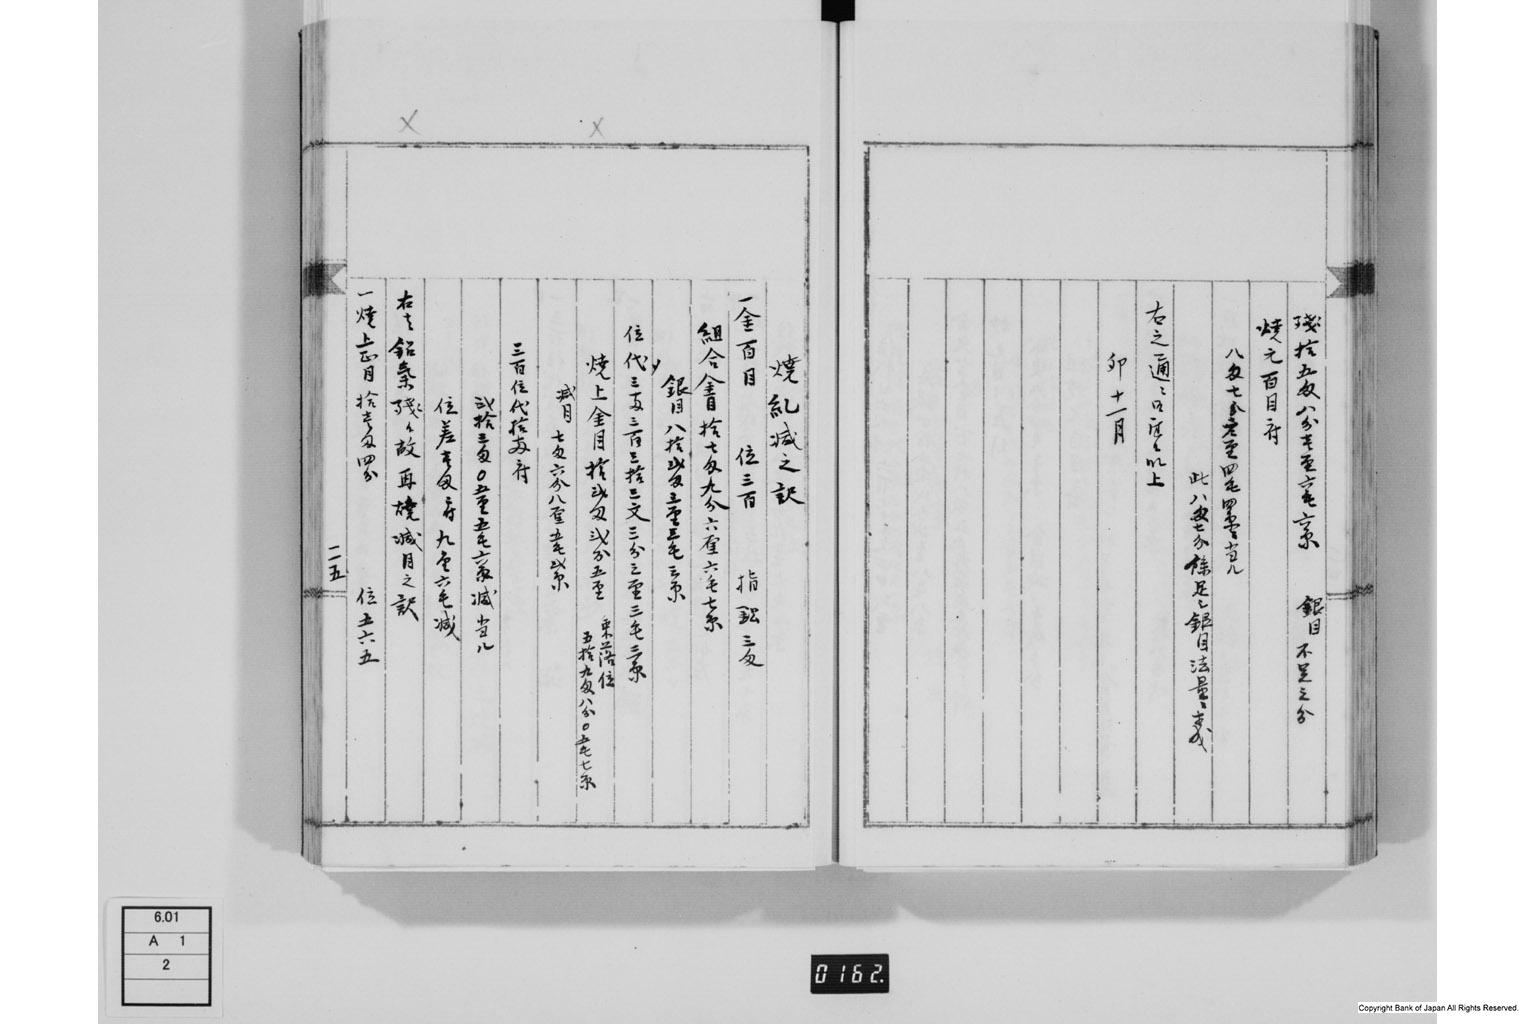 残拾五匁八分壱厘六毛六糸 銀目不足之分
焼元百目ニ付
八匁七分 四毛 当ル
此八匁七分余足シ銀目法量ニ
右之通ニ 以上
卯十一月
焼紀減之訳
一金百目 位三百 指鉛三匁
組合金目拾七匁九分六厘六毛七糸
銀目八拾弐匁三厘三毛三糸
位代三両三百三拾三文三分三厘三毛三糸
焼上金目拾弐匁弐分五厘
位
五拾九匁八分〇五毛七糸
減目 七匁六分八厘五毛弐糸
三百位代拾両ニ付
弐拾三匁〇五厘五毛六糸減当ル
位差壱匁ニ付九厘六毛減
右者鉛気残り候故再焼減目之訳
一焼上正目拾壱匁四分 位五六五
二五
6.01
A 1
2
0162.
Copyright Bank of Japan All Rights Reserved.